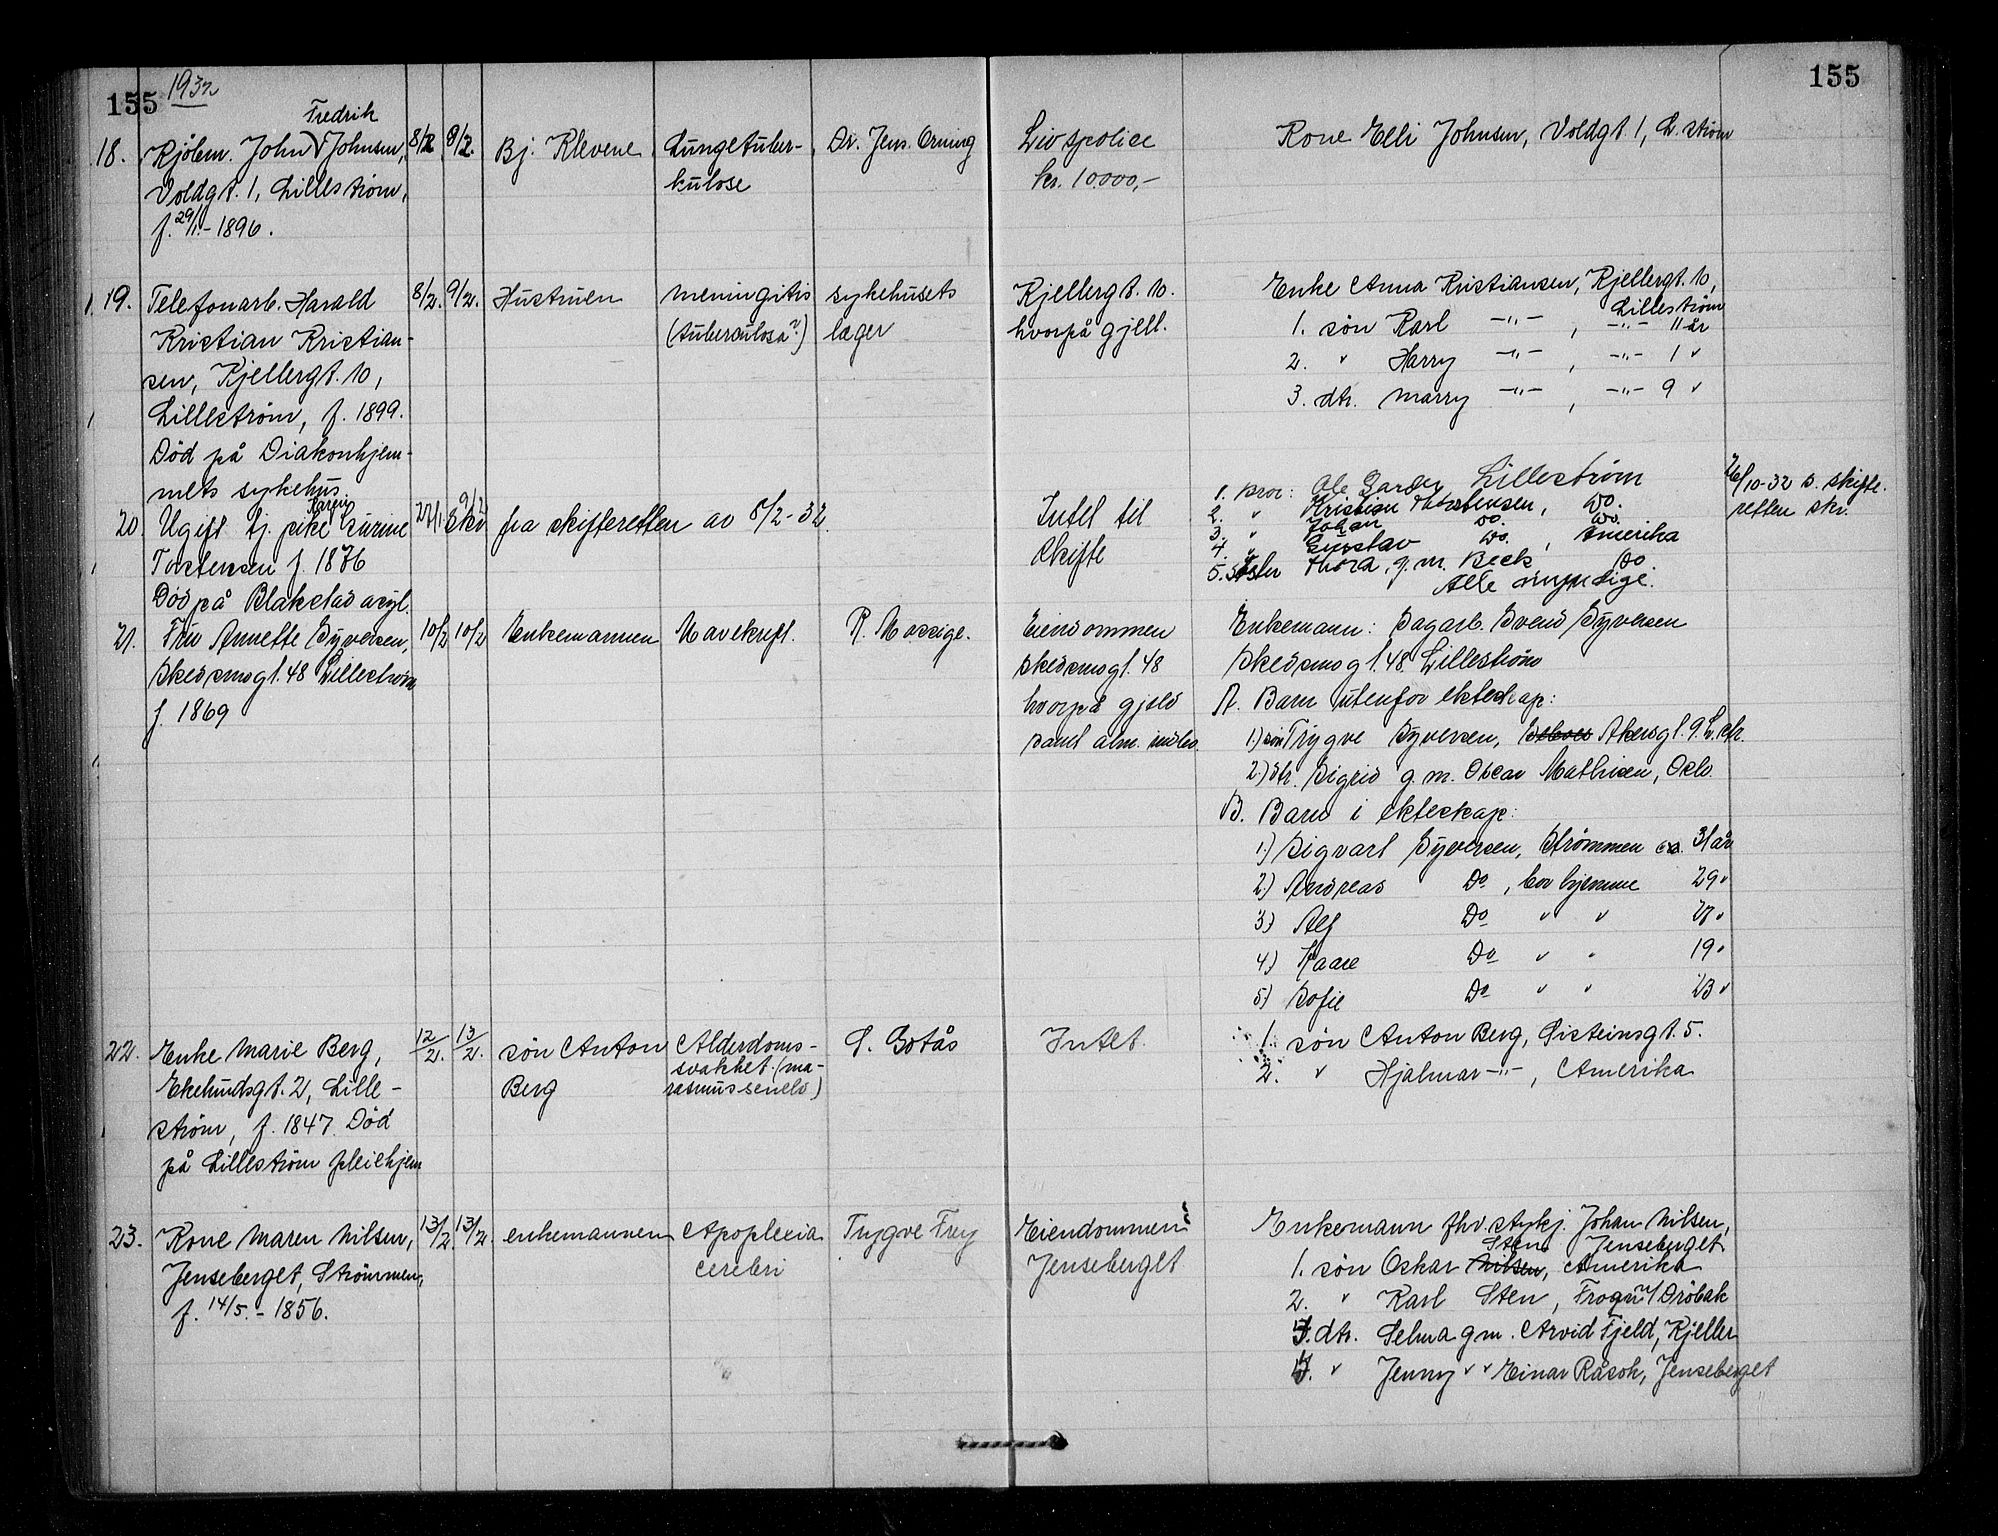 155 1932 155
18. Kjølem. John Fredrik Johnsen, 8/2 9/2. Bj. Klevene Lungetuber- Dr. Jens Orning Livspolice Kone Elli Johnsen, Voldgt. 1, L.strøm
Voldgt. 1, Lillestrøm, kulose kr. 10.000,-
f. 29/1.-1896.
19. Telefonarb. Harald 8/2. 9/2. Hustruen meningitis sykehusets Kjellergt. 10. Enke Anna Kristiansen, Kjellergt. 10,
Lillestrøm
Kristian Kristian- (tuberculosa?) læger hvorpå gjell. 1. søn Karl -"- , -"- 11 år
sen, Kjellergt. 10, 2. " Harry -"- , -"- 1 "
Lillestrøm, f. 1899. 3. dtr. Marry -"- , -"- 9 "
Død på Diakonhjem-
mets sykehus
20. Ugift tj. pike Karen 22/1 9/2 Skr. fra skifteretten av 8/2-32. Intet til 1. bror: Ole Garder Lillestrøm 26/10-32 s. skifte-
Tostensen f. 1876 Skifte 2. " Kristian Thorstensen, Do. retten skr.
Død på Blakstad asyl. 3. " Johan Do. Do.
4. " Gustav Do. , Amerika
5. Søster Thora, g. m. Beck Do.
Alle myndige.
21. Fru Annette Syversen, 10/2 10/2 Enkemannen Mavekreft. R. Mossige. Eiendommen Enkemann: Sagarb. Svend Syversen
Skedsmogt. 48 Lillestrøm Skedsmogt. 48 Skedsmogt. 48 Lillestrøm
f. 1869 hvorpå gjeld A. Barn utenfor ekteskap:
samt alm. indbo. 1.) søn Trygve Syversen, Akersgt. 9. L.str.
2.) dtr. Sigrid g. m. Oscar Mathisen, Oslo.
B. Barn i ekteskap:
1.) Sigvart Syversen, Strømmen ca. 31 år
2.) Andreas Do , bor hjemme 29 "
3) Alf Do " " 27 "
4) Kaare Do " " 19 "
5) Sofie Do " " 23 "
22. Enke Marie Berg, 12/2. 13/2. søn Anton Alderdoms- S. Botås Intet. 1. søn Anton Berg, Gisteinsgt. 5.
Ekelundsgt. 2, Lille- Berg svakhet. (ma- 2. " Hjalmar -"- , Amerika
strøm, f. 1847. Død rasmus senelis)
på Lillestrøm pleiehjem
23. Kone Maren Nilsen, 13/2. 13/2. enkemannen Apoplexia Trygve Frey Eiendommen Enkemann fhv. stykj. Johan Nilsen,
Jenseberget, Strømmen, cerebri Jenseberget Jenseberget
f. 14/5.-1856. 1. søn Oskar Nilsen Sten, Amerika
2. " Karl Sten, Frogn v/ Drøbak
3. dtr. Selma g m. Arvid Fjeld, Kjeller
4. " Jenny " " Einar Råsok, Jenseberget